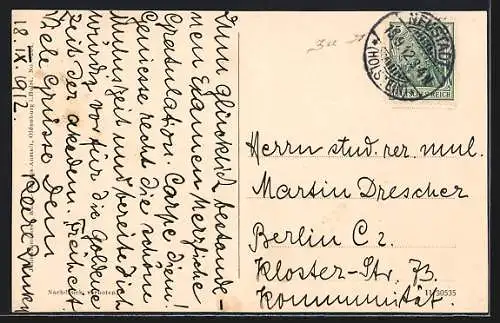 Zum Glücklich bestande-
nen Examen herzliche
Gratulation. Carpe diem!
Geniesse recht die schöne
Ruhezeit und bereite dich
würdig vor für die goldene
Zeit der akadem. Freiheit
Viele Grüsse Dein
18. IX. 1912.
NEUSTADT
(HOLST)
18.9.12
DEUTSCHES REICH
Herrn stud. rer. mul.
Martin Drescher
Berlin C 2.
Kloster-Str. 73.
Kommunität.
Nachdruck verboten.
11 30535